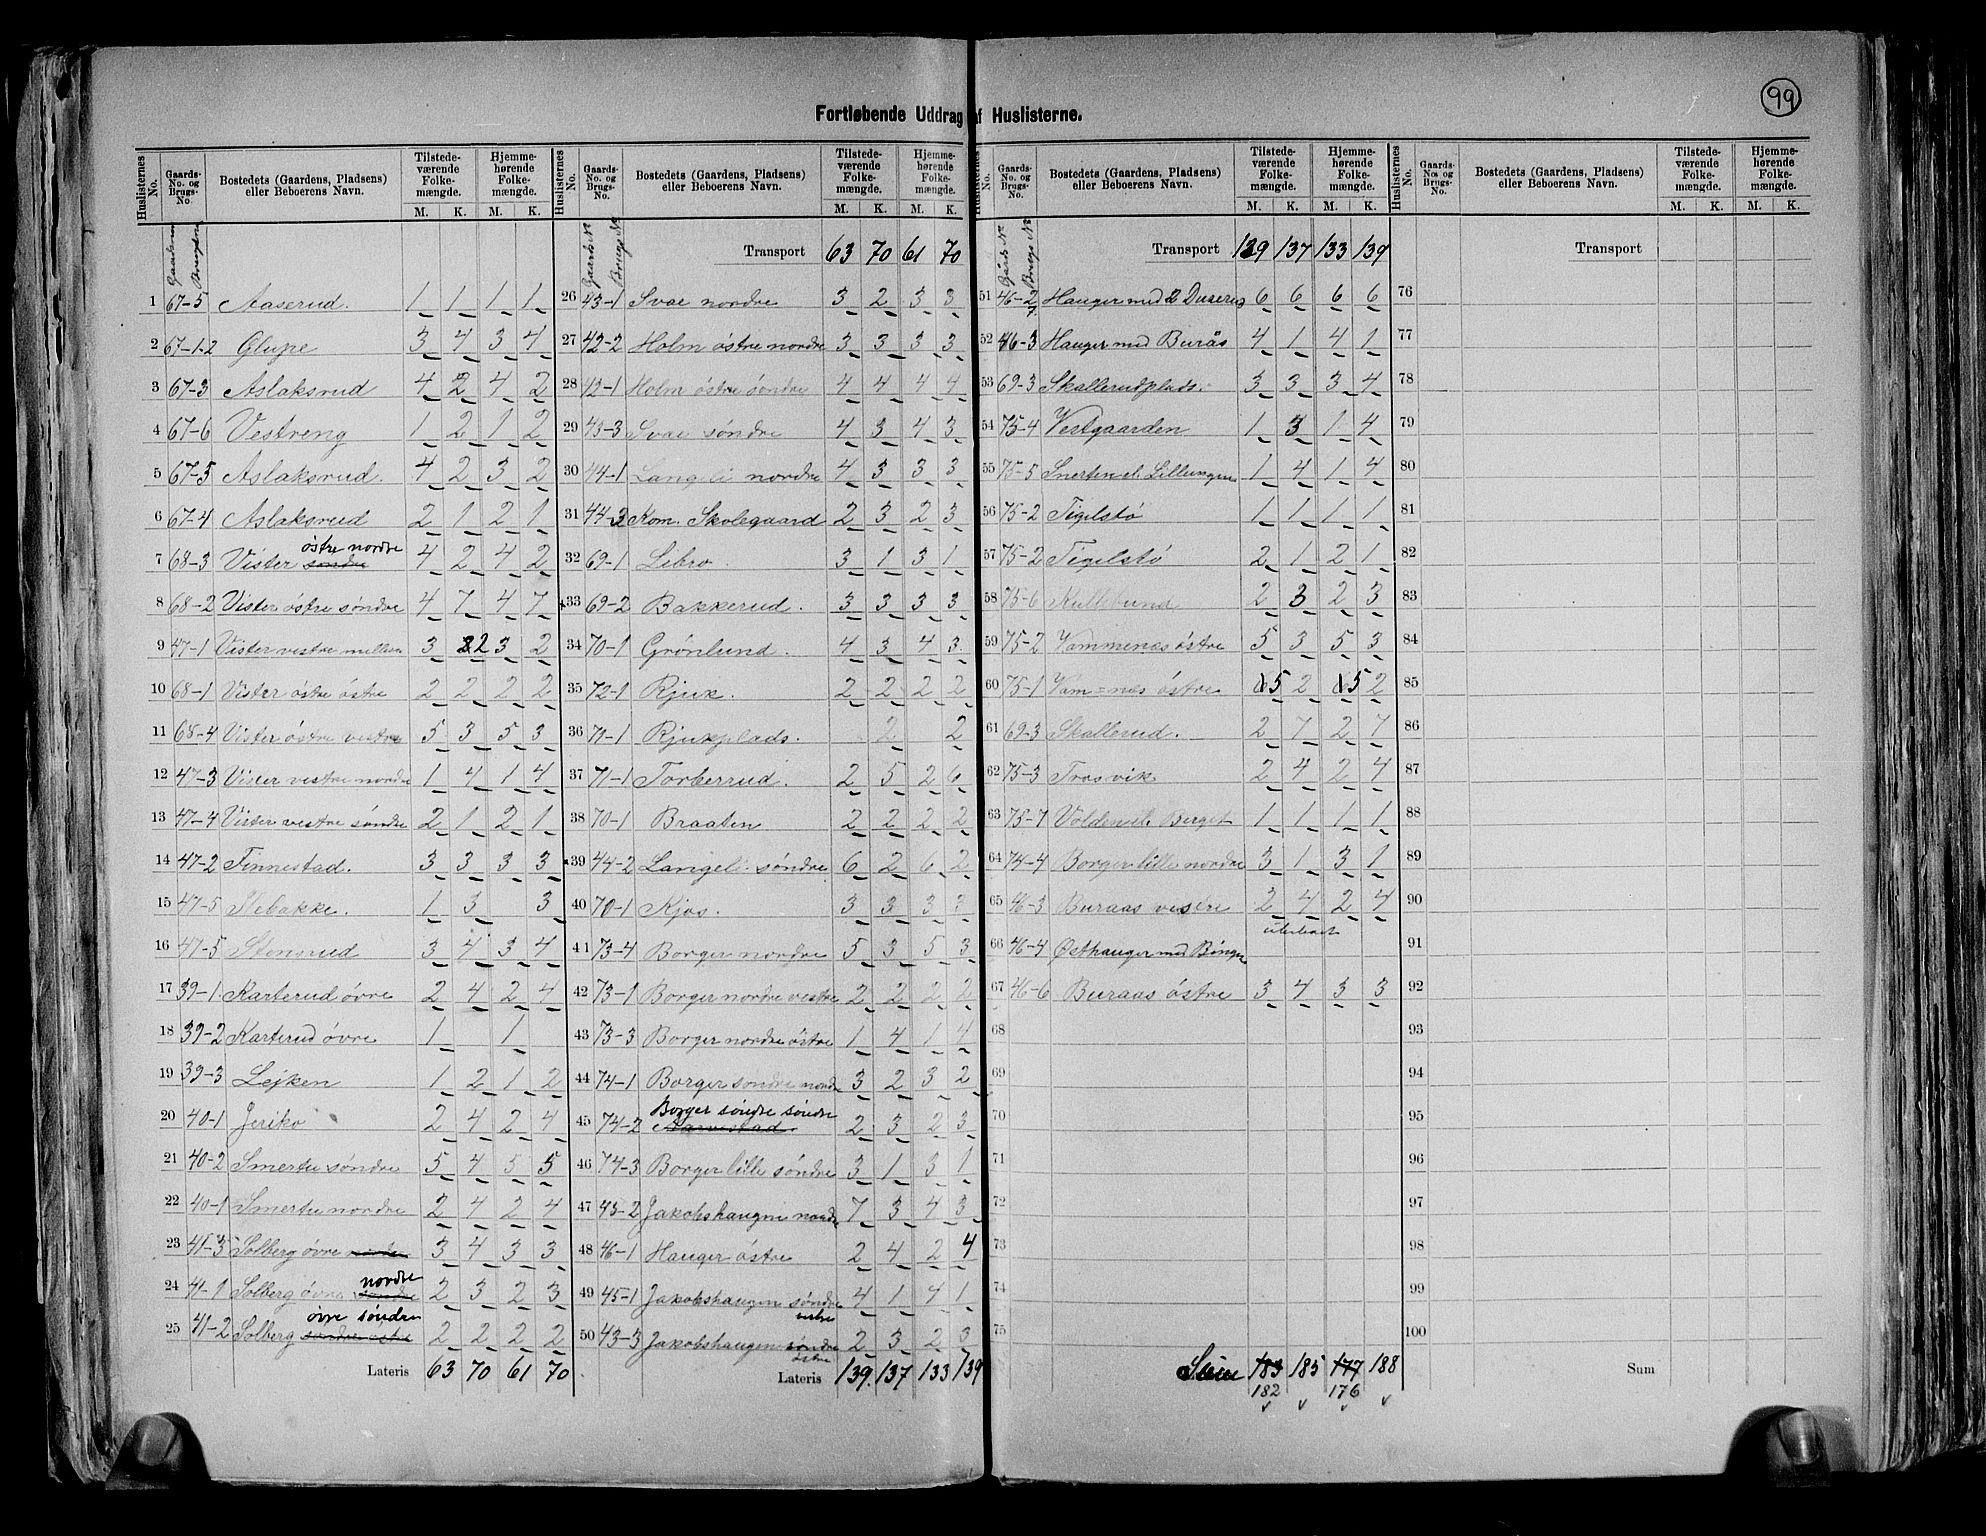 99
Fortløbende Uddrag af Huslisterne.
Huslisternes No. | Gaards-No. og Brugs-No. | Bostedets (Gaardens, Pladsens) eller Beboerens Navn. | Tilstedeværende Folkemængde. M. K. | Hjemmehørende Folkemængde. M. K.
1 67-5 Aaserud. 1 1 1 1
2 67-1.2 Glupe 3 4 3 4
3 67-3 Aslaksrud 4 2 4 2
4 67-6 Vestreng 1 2 1 2
5 67-5 Aslaksrud. 4 2 3 2
6 67-4 Aslaksrud 2 1 2 1
7 68-3 Vister søndre østre nordre 4 2 4 2
8 68-2 Vister østre søndre 4 7 4 7
9 47-1 Vister vestre mellem 3 2 3 2
10 68-1 Vister østre østre 2 2 2 2
11 68-4 Vister østre vestre 5 3 5 3
12 47-3 Vister vestre nordre 1 4 1 4
13 47-4 Vister vestre søndre 2 1 2 1
14 47-2 Finnestad. 3 3 3 3
15 47-5 Stebakke. 1 3 3
16 47-5 Stensrud 3 4 3 4
17 39-1. Karterud øvre 2 4 2 4
18 39-2 Karterud øvre 1 1
19 39-3 Lejken 1 2 1 2
20 40-1 Jeriko 2 4 2 4
21 40-2 Smertu søndre 5 4 5 5
22 40-1 Smertu nordre 2 4 2 4
23 41-3 Solberg øvre 3 4 3 3
24 41-1 Solberg øvre søndre nordre 2 3 2 3
25 41-2 Solberg søndre østre øvre søndre 2 2 2 2
Lateris 63 70 61 70
Huslisternes No. | Gaards-No. og Brugs-No. | Bostedets (Gaardens, Pladsens) eller Beboerens Navn. | Tilstedeværende Folkemængde. M. K. | Hjemmehørende Folkemængde. M. K.
Gaards No Brugs No
Transport 63 70 61 70
26 43-1 Svae nordre 3 2 3 3
27 42-2 Holm østre nordre 3 3 3 3
28 42-1 Holm østre søndre 4 4 4 4
29 43-3 Svae søndre 4 3 4 3
30 44-1 Langeli nordre 4 3 3 3
31 44-3 Kom. Skolegaard 2 3 2 3
32 69-1 Lebro. 3 1 3 1
33 69-2 Bakkerud. 3 3 3 3
34 70-1 Grønlund. 4 3 4 3
35 72-1 Rjuk. 2 2 2 2
36 71-1 Rjukplads. 2 2
37 71-1 Torberrud. 2 5 2 6
38 70-1 Braaten 2 2 2 2
39 44-2 Langeli søndre 6 2 6 2
40 70-1 Kjos. 3 3 3 3
41 73-4 Borger nordre 5 3 5 3
42 73-1 Borger nordre vestre 2 2 2 2
43 73-3 Borger nordre østre 1 4 1 4
44 74-1 Borger søndre nordre 3 2 3 2
45 74-2 Borger søndre søndre 2 3 2 3
46 74-3 Borger lille søndre 3 1 3 1
47 45-2 Jakobshaugen nordre 7 3 4 3
48 46-1 Hauger østre 2 4 2 4
49 45-1 Jakobshaugen søndre vestre 4 1 4 1
50 43-3 Jakobshaugen søndre østre 2 3 2 3
Lateris 139. 137 133 139
Huslisternes No. | Gaards-No. og Brugs-No. | Bostedets (Gaardens, Pladsens) eller Beboerens Navn. | Tilstedeværende Folkemængde. M. K. | Hjemmehørende Folkemængde. M. K.
Gårds No Brugs No
Transport 139 137 133 139
51 46-2 Hauger med Duserud 6 6 6 6
52 46-3 Hauger med Burås 4 1 4 1
53 69-3 Skallerudplads. 3 3 3 4
54 75-4 Vestgaarden 1 3 1 4
55 75-5 Snerten el. Lillungen 1 4 1 4
56 75-2 Tigelstø 1 1 1 1
57 75-2 Tigelstø 2 1 2 1
58 75-6 Kullebund 2 3 2 3
59 75-2 Vammenes østre 5 3 5 3
60 75-1 Vam=næs østre 5 2 5 2
61 69-3 Skallerud. 2 7 2 7
62 75-3 Trosvik 2 4 2 4
63 75-7 Volden el. Berget 1 1 1 1
64 74-4 Borger lille nordre 3 1 3 1
65 46-3 Buraas vestre 2 4 2 4
66 46-4 Østhauger med Bønger ubeboet
67 46-6 Buraas østre 3 4 3 3
68
69
70
71
72
73
74
75
Sum 183 185 177 188
182 176
Huslisternes No. | Gaards-Nos og Brugs-No. | Bostedets (Gaardens, Pladsens) eller Beboerens Navn. | Tilstedeværende Folkemængde. M. K. | Hjemmehørende Folkemængde. M. K.
Transport
76
77
78
79
80
81
82
83
84
85
86
87
88
89
90
91
92
93
94
95
96
97
98
99
100
Sum